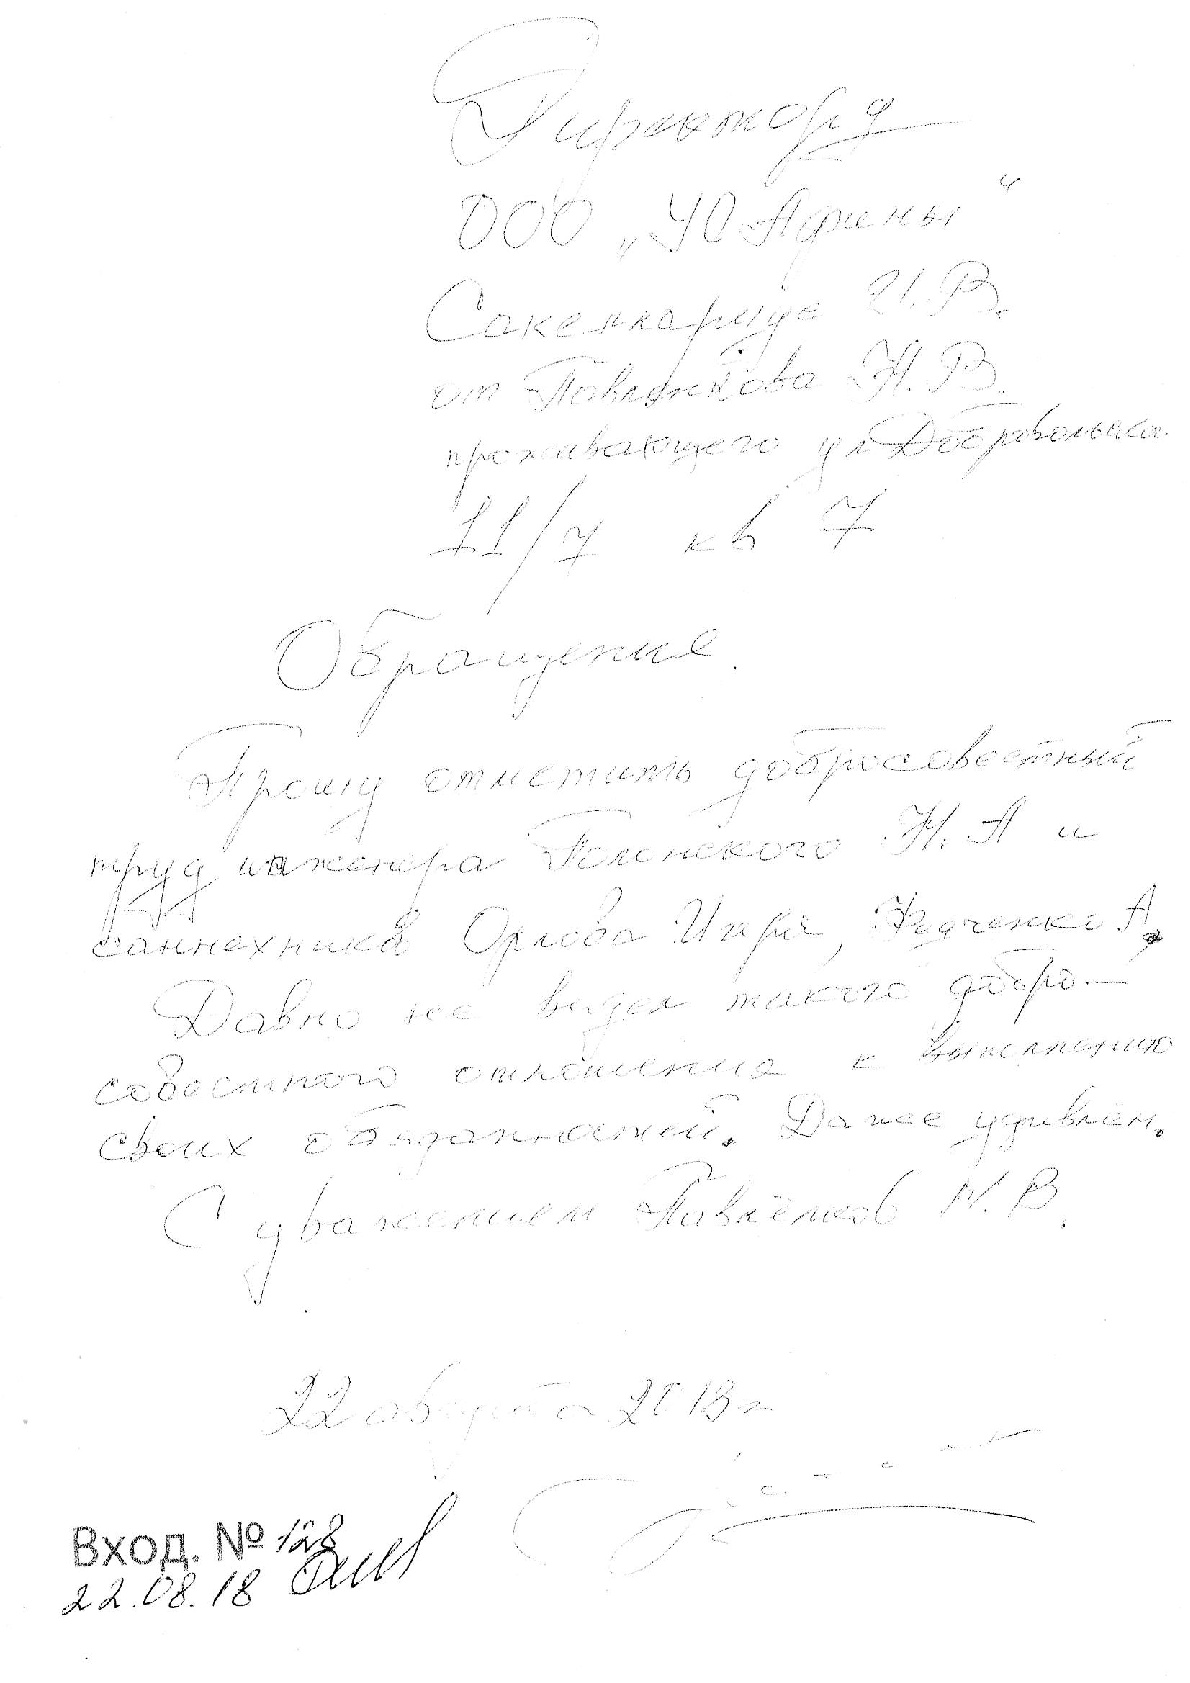 Директору
ООО „УО Афины“
И. В.
от Павленкова Н. В.
проживающего ул Добровольска
11/7 кв 7
Обращение.
Прошу отметить добросовестный
труд инженера Голенского Н. А и
сантехников Орлова Игоря, А,
Давно не видел такого добро-
совестного отношения к выполнению
своих обязанностей. Даже удивлён.
С уважением Павлёнков Н. В.
22 августа 2018 г
Вход. № 128
22.08.18